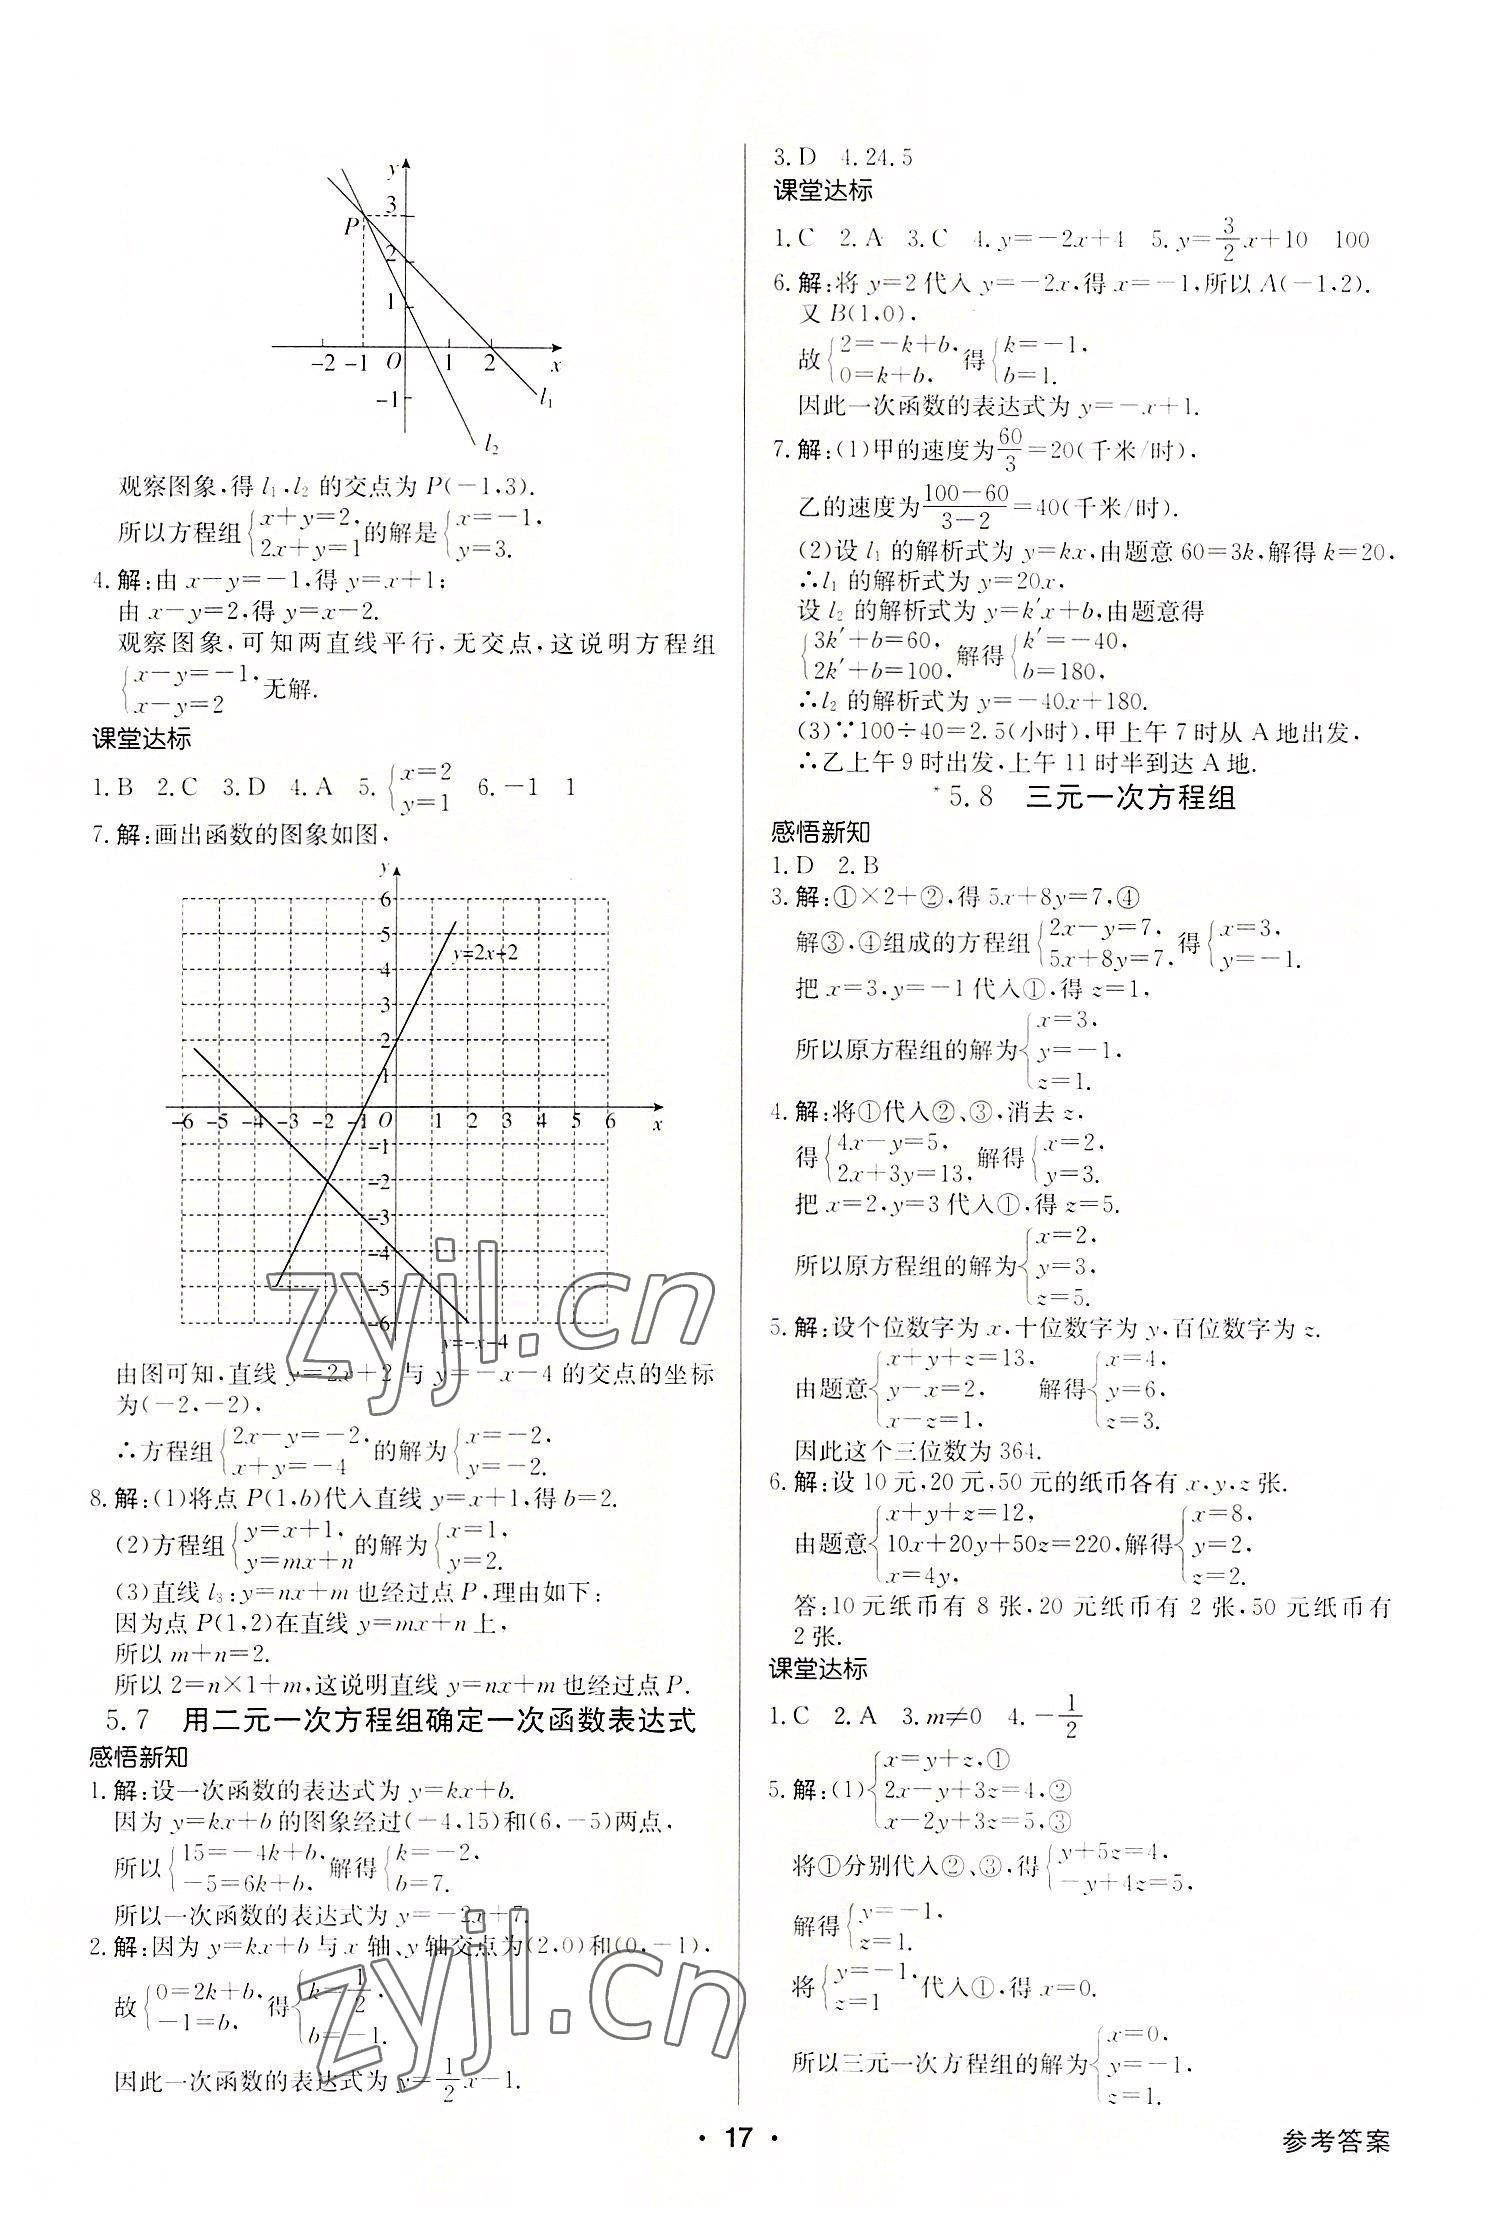 y
3
P
2
1
-2 -1 O 1 2 x
-1
l₁
l₂
观察图象,得 l₁,l₂ 的交点为 P(-1,3).
所以方程组{x+y=2, 2x+y=1 的解是{x=-1, y=3.
4.解:由 x-y=-1,得 y=x+1;
由 x-y=2,得 y=x-2.
观察图象,可知两直线平行,无交点,这说明方程组
{x-y=-1, x-y=2 无解.
课堂达标
1.B 2.C 3.D 4.A 5.{x=2 y=1 6.-1 1
7.解:画出函数的图象如图,
y
6
5
y=2x+2
4
3
2
1
-6 -5 -4 -3 -2 -1 O 1 2 3 4 5 6 x
-1
-2
-3
-4
-5
-6
y=-x-4
由图可知,直线 y=2x+2 与 y=-x-4 的交点的坐标
为(-2,-2),
∴方程组{2x-y=-2, x+y=-4 的解为{x=-2, y=-2.
8.解:(1)将点 P(1,b)代入直线 y=x+1,得 b=2.
(2)方程组{y=x+1, y=mx+n 的解为{x=1, y=2.
(3)直线 l₃:y=nx+m 也经过点 P,理由如下:
因为点 P(1,2)在直线 y=mx+n 上,
所以 m+n=2.
所以 2=n×1+m,这说明直线 y=nx+m 也经过点 P.
5.7 用二元一次方程组确定一次函数表达式
感悟新知
1.解:设一次函数的表达式为 y=kx+b.
因为 y=kx+b 的图象经过(-4,15)和(6,-5)两点,
所以{15=-4k+b, -5=6k+b, 解得{k=-2, b=7.
所以一次函数的表达式为 y=-2x+7.
2.解:因为 y=kx+b 与 x 轴、y 轴交点为(2,0)和(0,-1),
故{0=2k+b, -1=b, 得{k=1/2, b=-1.
因此一次函数的表达式为 y=1/2 x-1.
3.D 4.24.5
课堂达标
1.C 2.A 3.C 4.y=-2x+4 5.y=3/2 x+10 100
6.解:将 y=2 代入 y=-2x,得 x=-1,所以 A(-1,2).
又 B(1,0),
故{2=-k+b, 0=k+b, 得{k=-1, b=1.
因此一次函数的表达式为 y=-x+1.
7.解:(1)甲的速度为60/3=20(千米/时),
乙的速度为(100-60)/(3-2)=40(千米/时).
(2)设 l₁ 的解析式为 y=kx,由题意 60=3k,解得 k=20,
∴l₁ 的解析式为 y=20x,
设 l₂ 的解析式为 y=k′x+b,由题意得
{3k′+b=60, 2k′+b=100, 解得{k′=-40, b=180,
∴l₂ 的解析式为 y=-40x+180.
(3)∵100÷40=2.5(小时),甲上午 7 时从 A 地出发,
∴乙上午 9 时出发,上午 11 时半到达 A 地.
*5.8 三元一次方程组
感悟新知
1.D 2.B
3.解:①×2+②,得 5x+8y=7,④
解③,④组成的方程组{2x-y=7, 5x+8y=7, 得{x=3, y=-1.
把 x=3,y=-1 代入①,得 z=1,
所以原方程组的解为{x=3, y=-1, z=1.
4.解:将①代入②、③,消去 z,
得{4x-y=5, 2x+3y=13, 解得{x=2, y=3.
把 x=2,y=3 代入①,得 z=5.
所以原方程组的解为{x=2, y=3, z=5.
5.解:设个位数字为 x,十位数字为 y,百位数字为 z.
由题意{x+y+z=13, y-x=2, x-z=1, 解得{x=4, y=6, z=3.
因此这个三位数为 364.
6.解:设 10 元,20 元,50 元的纸币各有 x,y,z 张.
由题意{x+y+z=12, 10x+20y+50z=220, x=4y, 解得{x=8, y=2, z=2.
答:10 元纸币有 8 张,20 元纸币有 2 张,50 元纸币有
2 张.
课堂达标
1.C 2.A 3.m≠0 4.-1/2
5.解:(1){x=y+z,① 2x-y+3z=4,② x-2y+3z=5,③
将①分别代入②、③,得{y+5z=4, -y+4z=5,
解得{y=-1, z=1.
将{y=-1, z=1 代入①,得 x=0.
所以三元一次方程组的解为{x=0, y=-1, z=1.
zyjl.cn
zyjl.cn
· 17 ·
参考答案